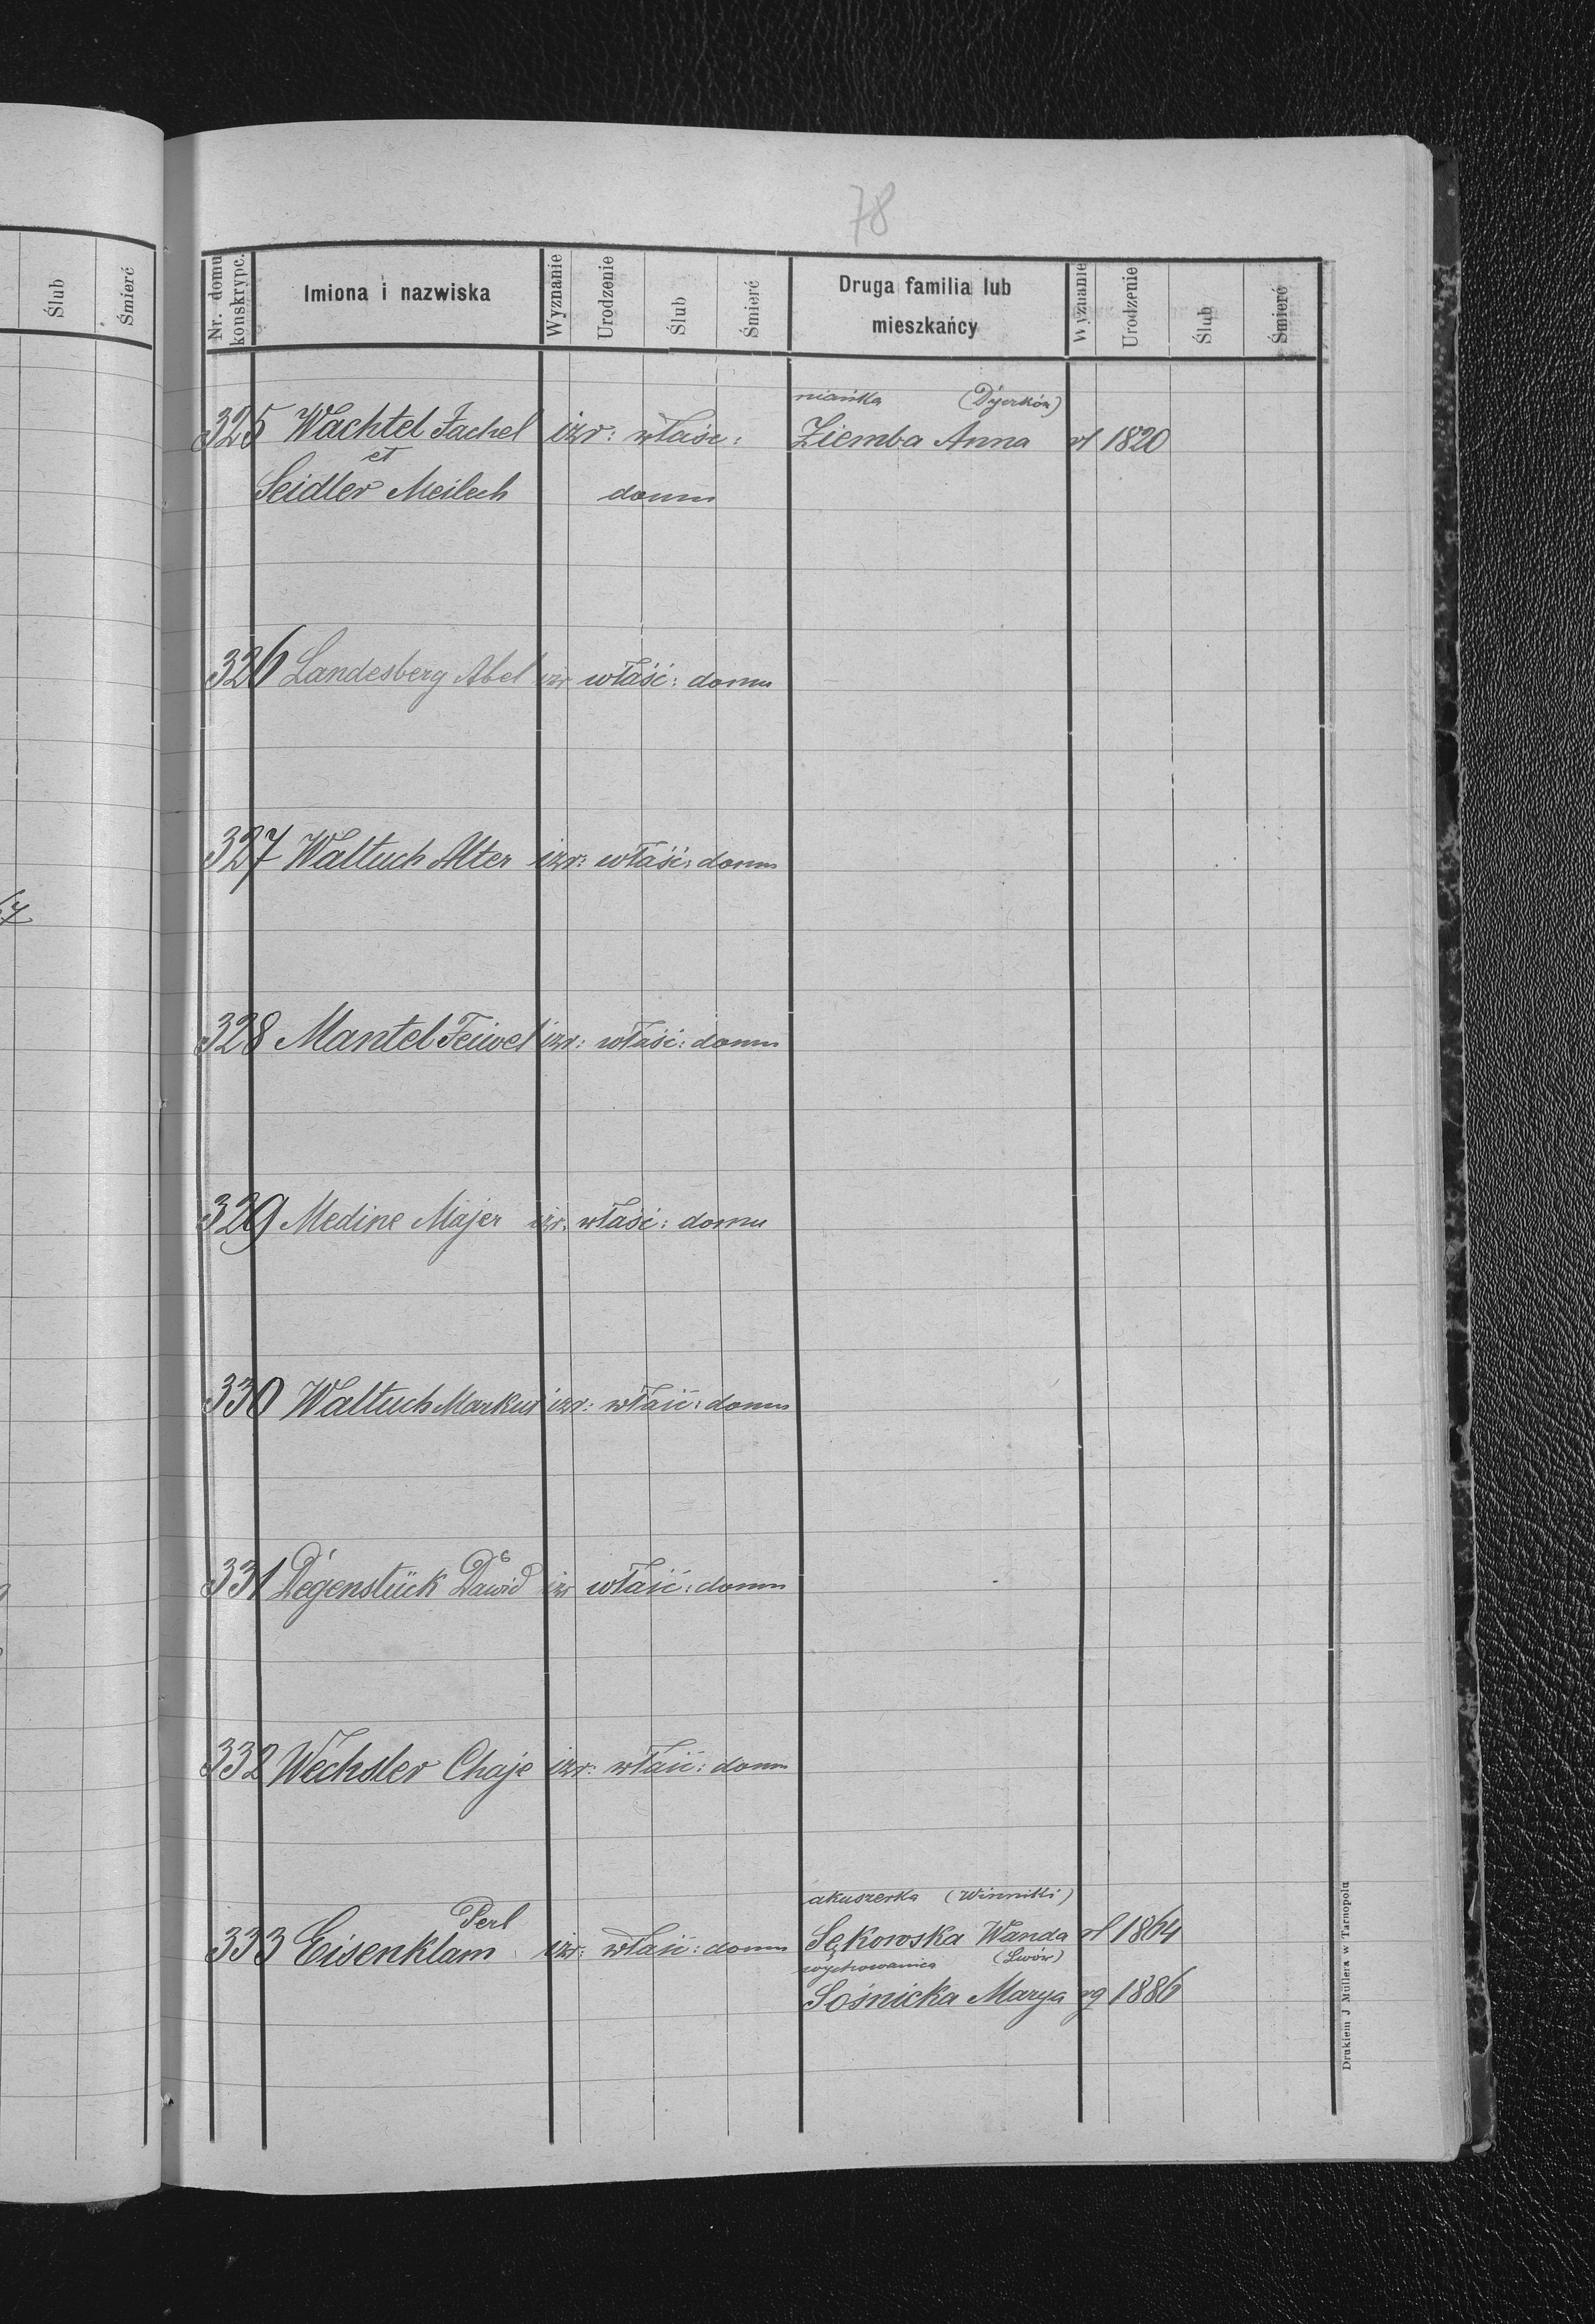 78
Ślub Śmierć
Nr. domu konskrypc. Imiona i nazwiska Wyznanie Urodzenie Ślub Śmierć Druga familia lub mieszkańcy Wyznanie Urodzenie Ślub Śmierć
niańka (Dyczków)
325 Wachtel Jachel izr: właśc: Ziemba Anna rł 1820
et
Seidler Meilech domu
326 Landesberg Abel izr właść: domu
327 Waltuch Alter izr: właść: domu
328 Mantel Feiwel izr: właść: domu
329 Medine Majer izr. właść: domu
330 Waltuch Markus izr: właść: domu
331 Degenstück Dawid izr właść: domu
332 Wechsler Chaje izr: właść: domu
akuszerka (Winniki)
Perl
333 Eisenklam izr: właść: domu Sękowska Wanda rł 1864
wychowanica (Lwów)
Sośnicka Marya rg 1886
Drukiem J Müllera w Tarnopolu